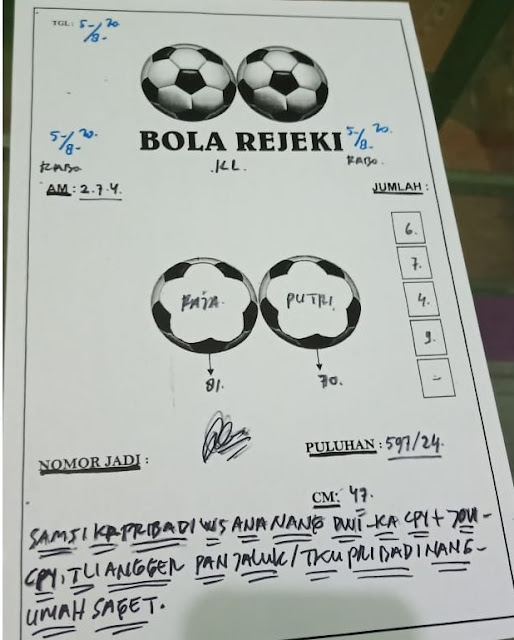 TGL : 5-/8-20.
5-/8-20.
BOLA REJEKI
5-/8-20.
RABO.
KL.
RABO.
AM : 2.7.4.
JUMLAH :
6.
7.
4.
9.
-
RAJA.
PUTRI.
81.
70.
PULUHAN : 597/24.
NOMOR JADI :
CM: 47.
SAMSI KAPRIBADI WS ANA NANG DWI-KA CPY+
CPY. TLI ANGGER PANJALUK/TKU PRIBADI NANG-
UMAH SAGET.